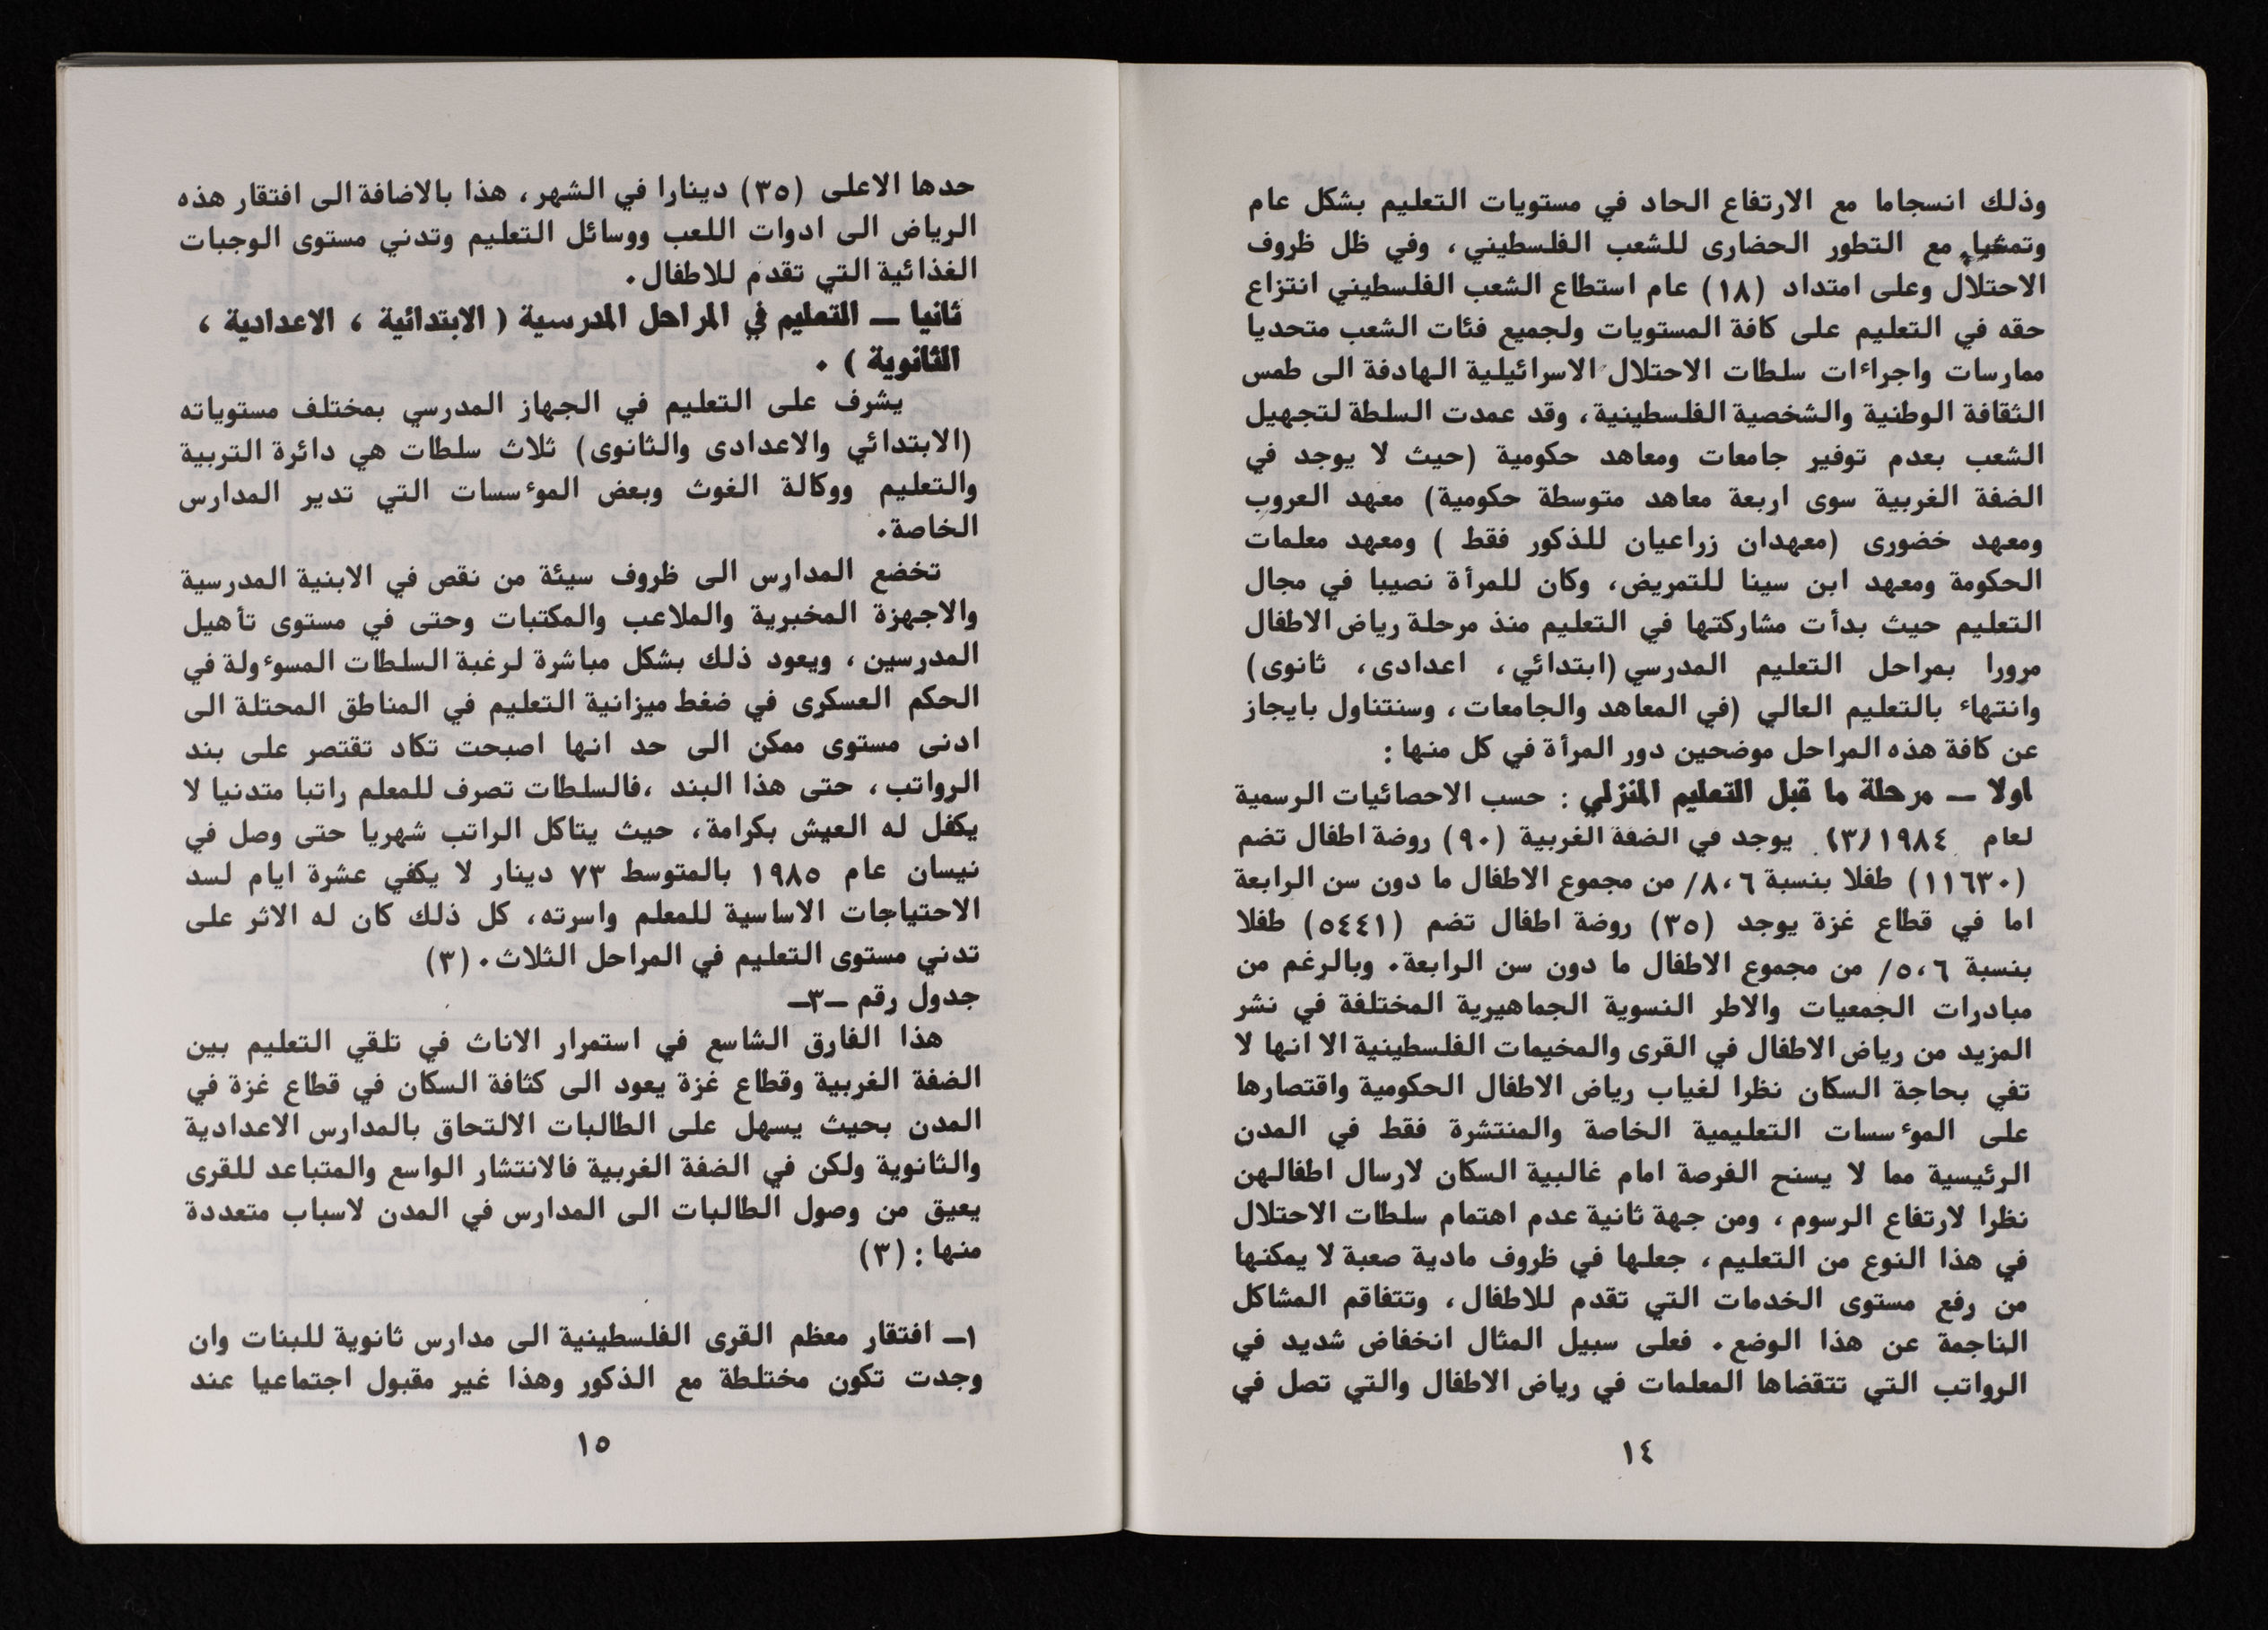 وذلك انسجاما مع الارتفاع الحاد في مستويات التعليم بشكل عام
وتمشيا مع التطور الحضارى للشعب الفلسطيني، وفي ظل ظروف
الاحتلال وعلى امتداد (١٨) عام استطاع الشعب الفلسطيني انتزاع
حقه في التعليم على كافة المستويات ولجميع فئات الشعب متحديا
ممارسات واجراءات سلطات الاحتلال الاسرائيلية الهادفة الى طمس
الثقافة الوطنية والشخصية الفلسطينية، وقد عمدت السلطة لتجهيل
الشعب بعدم توفير جامعات ومعاهد حكومية (حيث لا يوجد في
الضفة الغربية سوى اربعة معاهد متوسطة حكومية) معهد العروب
ومعهد خضورى (معهدان زراعيان للذكور فقط ) ومعهد معلمات
الحكومة ومعهد ابن سينا للتمريض، وكان للمرأة نصيبا في مجال
التعليم حيث بدأت مشاركتها في التعليم منذ مرحلة رياض الاطفال
مرورا بمراحل التعليم المدرسي (ابتدائي، اعدادى، ثانوى)
وانتهاء بالتعليم العالي (في المعاهد والجامعات، وسنتناول بايجاز
عن كافة هذه المراحل موضحين دور المرأة في كل منها :
اولا — مرحلة ما قبل التعليم المنزلي : حسب الاحصائيات الرسمية
لعام ١٩٨٤/(٣) يوجد في الضفة الغربية (٩٠) روضة اطفال تضم
(١١٦٣٠) طفلا بنسبة ٨،٦/ من مجموع الاطفال ما دون سن الرابعة
اما في قطاع غزة يوجد (٣٥) روضة اطفال تضم (٥٤٤١) طفلا
بنسبة ٥،٦/ من مجموع الاطفال ما دون سن الرابعة. وبالرغم من
مبادرات الجمعيات والاطر النسوية الجماهيرية المختلفة في نشر
المزيد من رياض الاطفال في القرى والمخيمات الفلسطينية الا انها لا
تفي بحاجة السكان نظرا لغياب رياض الاطفال الحكومية واقتصارها
على الموءسسات التعليمية الخاصة والمنتشرة فقط في المدن
الرئيسية مما لا يسنح الفرصة امام غالبية السكان لارسال اطفالهن
نظرا لارتفاع الرسوم، ومن جهة ثانية عدم اهتمام سلطات الاحتلال
في هذا النوع من التعليم، جعلها في ظروف مادية صعبة لا يمكنها
من رفع مستوى الخدمات التي تقدم للاطفال، وتتفاقم المشاكل
الناجمة عن هذا الوضع. فعلى سبيل المثال انخفاض شديد في
الرواتب التي تتقضاها المعلمات في رياض الاطفال والتي تصل في
١٤
حدها الاعلى (٣٥) دينارا في الشهر، هذا بالاضافة الى افتقار هذه
الرياض الى ادوات اللعب ووسائل التعليم وتدني مستوى الوجبات
الغذائية التي تقدم للاطفال.
ثانيا — التعليم في المراحل المدرسية ( الابتدائية ، الاعدادية ،
الثانوية ) .
يشرف على التعليم في الجهاز المدرسي بمختلف مستوياته
(الابتدائي والاعدادى والثانوى) ثلاث سلطات هي دائرة التربية
والتعليم ووكالة الغوث وبعض الموءسسات التي تدير المدارس
الخاصة.
تخضع المدارس الى ظروف سيئة من نقص في الابنية المدرسية
والاجهزة المخبرية والملاعب والمكتبات وحتى في مستوى تأهيل
المدرسين، ويعود ذلك بشكل مباشرة لرغبة السلطات المسوءولة في
الحكم العسكرى في ضغط ميزانية التعليم في المناطق المحتلة الى
ادنى مستوى ممكن الى حد انها اصبحت تكاد تقتصر على بند
الرواتب، حتى هذا البند ،فالسلطات تصرف للمعلم راتبا متدنيا لا
يكفل له العيش بكرامة، حيث يتاكل الراتب شهريا حتى وصل في
نيسان عام ١٩٨٥ بالمتوسط ٧٣ دينار لا يكفي عشرة ايام لسد
الاحتياجات الاساسية للمعلم واسرته، كل ذلك كان له الاثر على
تدني مستوى التعليم في المراحل الثلاث. (٣)
جدول رقم —٣—
هذا الفارق الشاسع في استمرار الاناث في تلقي التعليم بين
الضفة الغربية وقطاع غزة يعود الى كثافة السكان في قطاع غزة في
المدن بحيث يسهل على الطالبات الالتحاق بالمدارس الاعدادية
والثانوية ولكن في الضفة الغربية فالانتشار الواسع والمتباعد للقرى
يعيق من وصول الطالبات الى المدارس في المدن لاسباب متعددة
منها : (٣)
١— افتقار معظم القرى الفلسطينية الى مدارس ثانوية للبنات وان
وجدت تكون مختلطة مع الذكور وهذا غير مقبول اجتماعيا عند
١٥